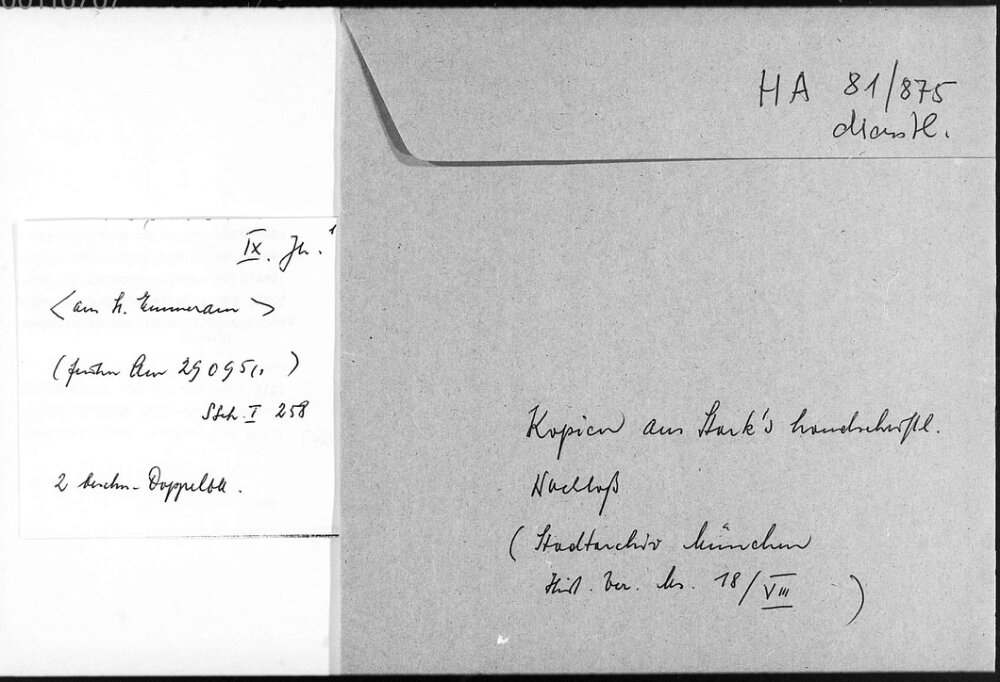 IX. Jh. 1
<aus St. Emmeram>
(früher Clm 29095/1)
Stch. I 258
2 beschn. Doppelbll.
HA 81/875
dienstl.
Kopien aus Stark's handschriftl.
Nachlaß
(Stadtarchiv München
Hist. Ver. Ms. 18/VIII)